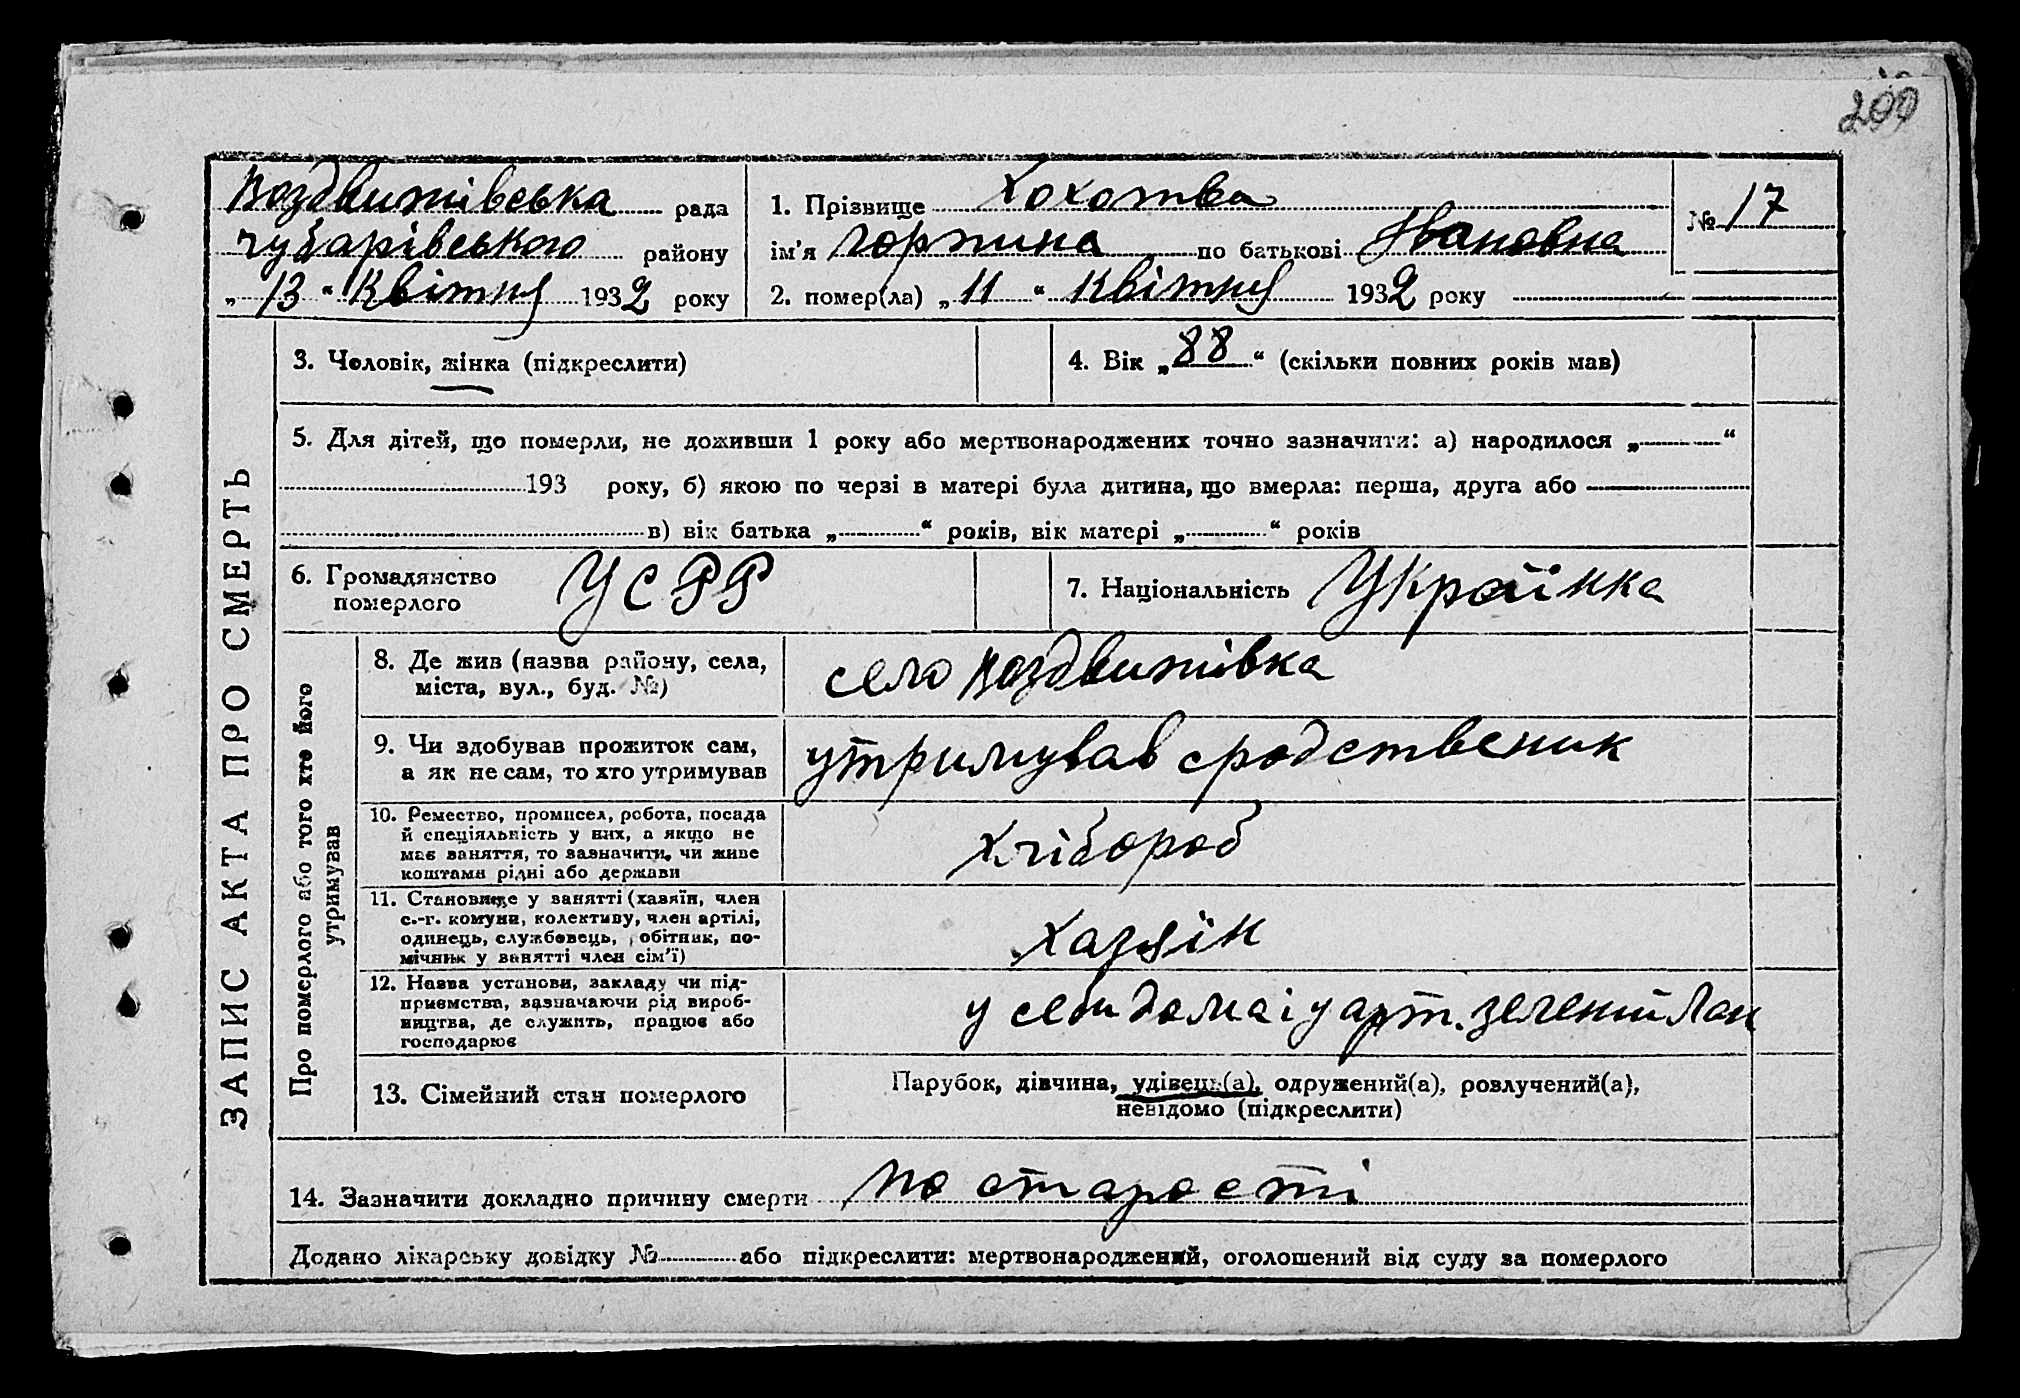 200
Воздвижівська рада
Чубарівського району
„ 13 “ Квітня 1932 року
1. Прізвище Хохотва
ім'я Горпина по батькові Івановна
2. помер(ла) „ 11 “ Квітня 1932 року
№ 17
ЗАПИС АКТА ПРО СМЕРТЬ
3. Чоловік, жінка (підкреслити)
4. Вік „ 88 “ (скільки повних років мав)
5. Для дітей, що померли, не доживши 1 року або мертвонароджених точно зазначити: а) народилося „ “
193 року, б) якою по черзі в матері була дитина, що вмерла: перша, друга або
в) вік батька „ “ років, вік матері „ “ років
6. Громадянство
померлого
УСРР
7. Національність Українка
Про померлого або того хто його
утримував
8. Де жив (назва району, села,
міста, вул., буд. №)
село Воздвижівка
9. Чи здобував прожиток сам,
а як не сам, то хто утримував
утримував сродственик
10. Ремество, промисел, робота, посада
й спеціяльність у них, а якщо не
має заняття, то зазначити, чи живе
коштами рідні або держави
Хлібороб
11. Становище у занятті (хазяїн, член
с.-г. комуни, колективу, член артілі,
одинець, службовець, робітник, по-
мічник у занятті член сім'ї)
Хазяін
12. Назва установи, закладу чи під-
приємства, зазначаючи рід вироб-
ництва, де служить, працює або
господарює
у себи дома і у арт. зелений Лан
13. Сімейний стан померлого
Парубок, дівчина, удівець(а), одружений(а), розлучений(а),
невідомо (підкреслити)
14. Зазначити докладно причину смерти по старости
Додано лікарську довідку № або підкреслити: мертвонароджений, оголошений від суду за померлого